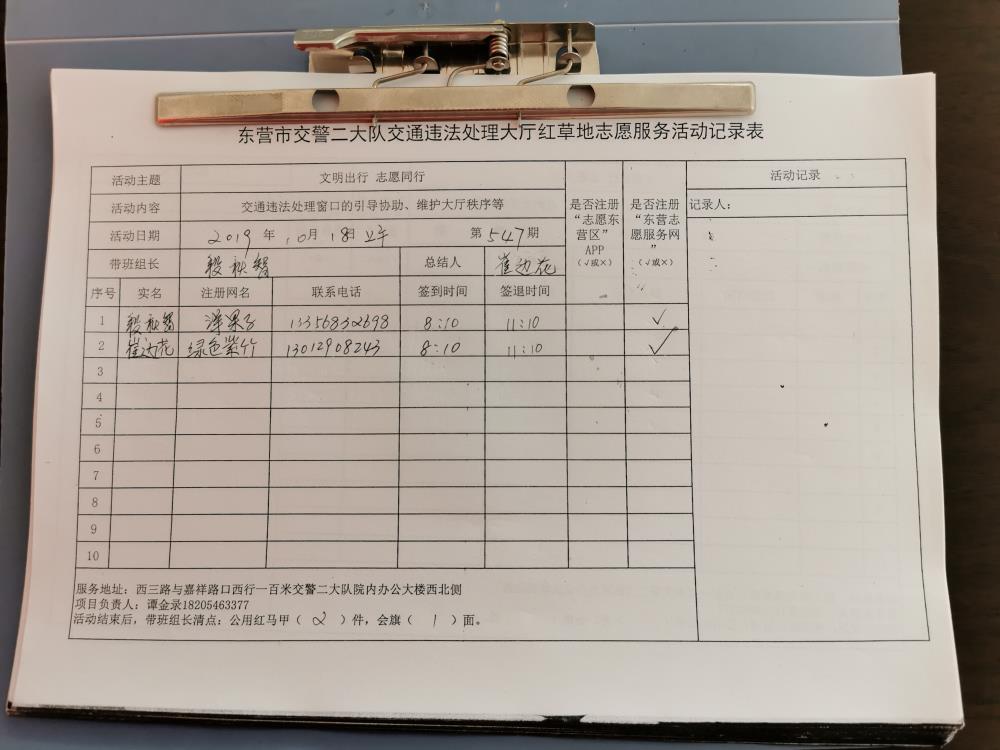 东营市交警二大队交通违法处理大厅红草地志愿服务活动记录表
活动主题 文明出行 志愿同行 活动记录
活动内容 交通违法处理窗口的引导协助、维护大厅秩序等 是否注册“志愿东营区”APP（√或×） 是否注册“东营志愿服务网”（√或×） 记录人：
活动日期 2019 年 10 月 18 日 上午 第 547 期
带班组长 总结人 崔边花
序号 实名 注册网名 联系电话 签到时间 签退时间
1 洋果子 13356832698 8:10 11:10 √
2 崔边花 绿色紫竹 13012908243 8:10 11:10 √
3
4
5
6
7
8
9
10
服务地址：西三路与嘉祥路口西行一百米交警二大队院内办公大楼西北侧
项目负责人：谭金录18205463377
活动结束后，带班组长清点：公用红马甲（ 2 ）件，会旗（ 1 ）面。